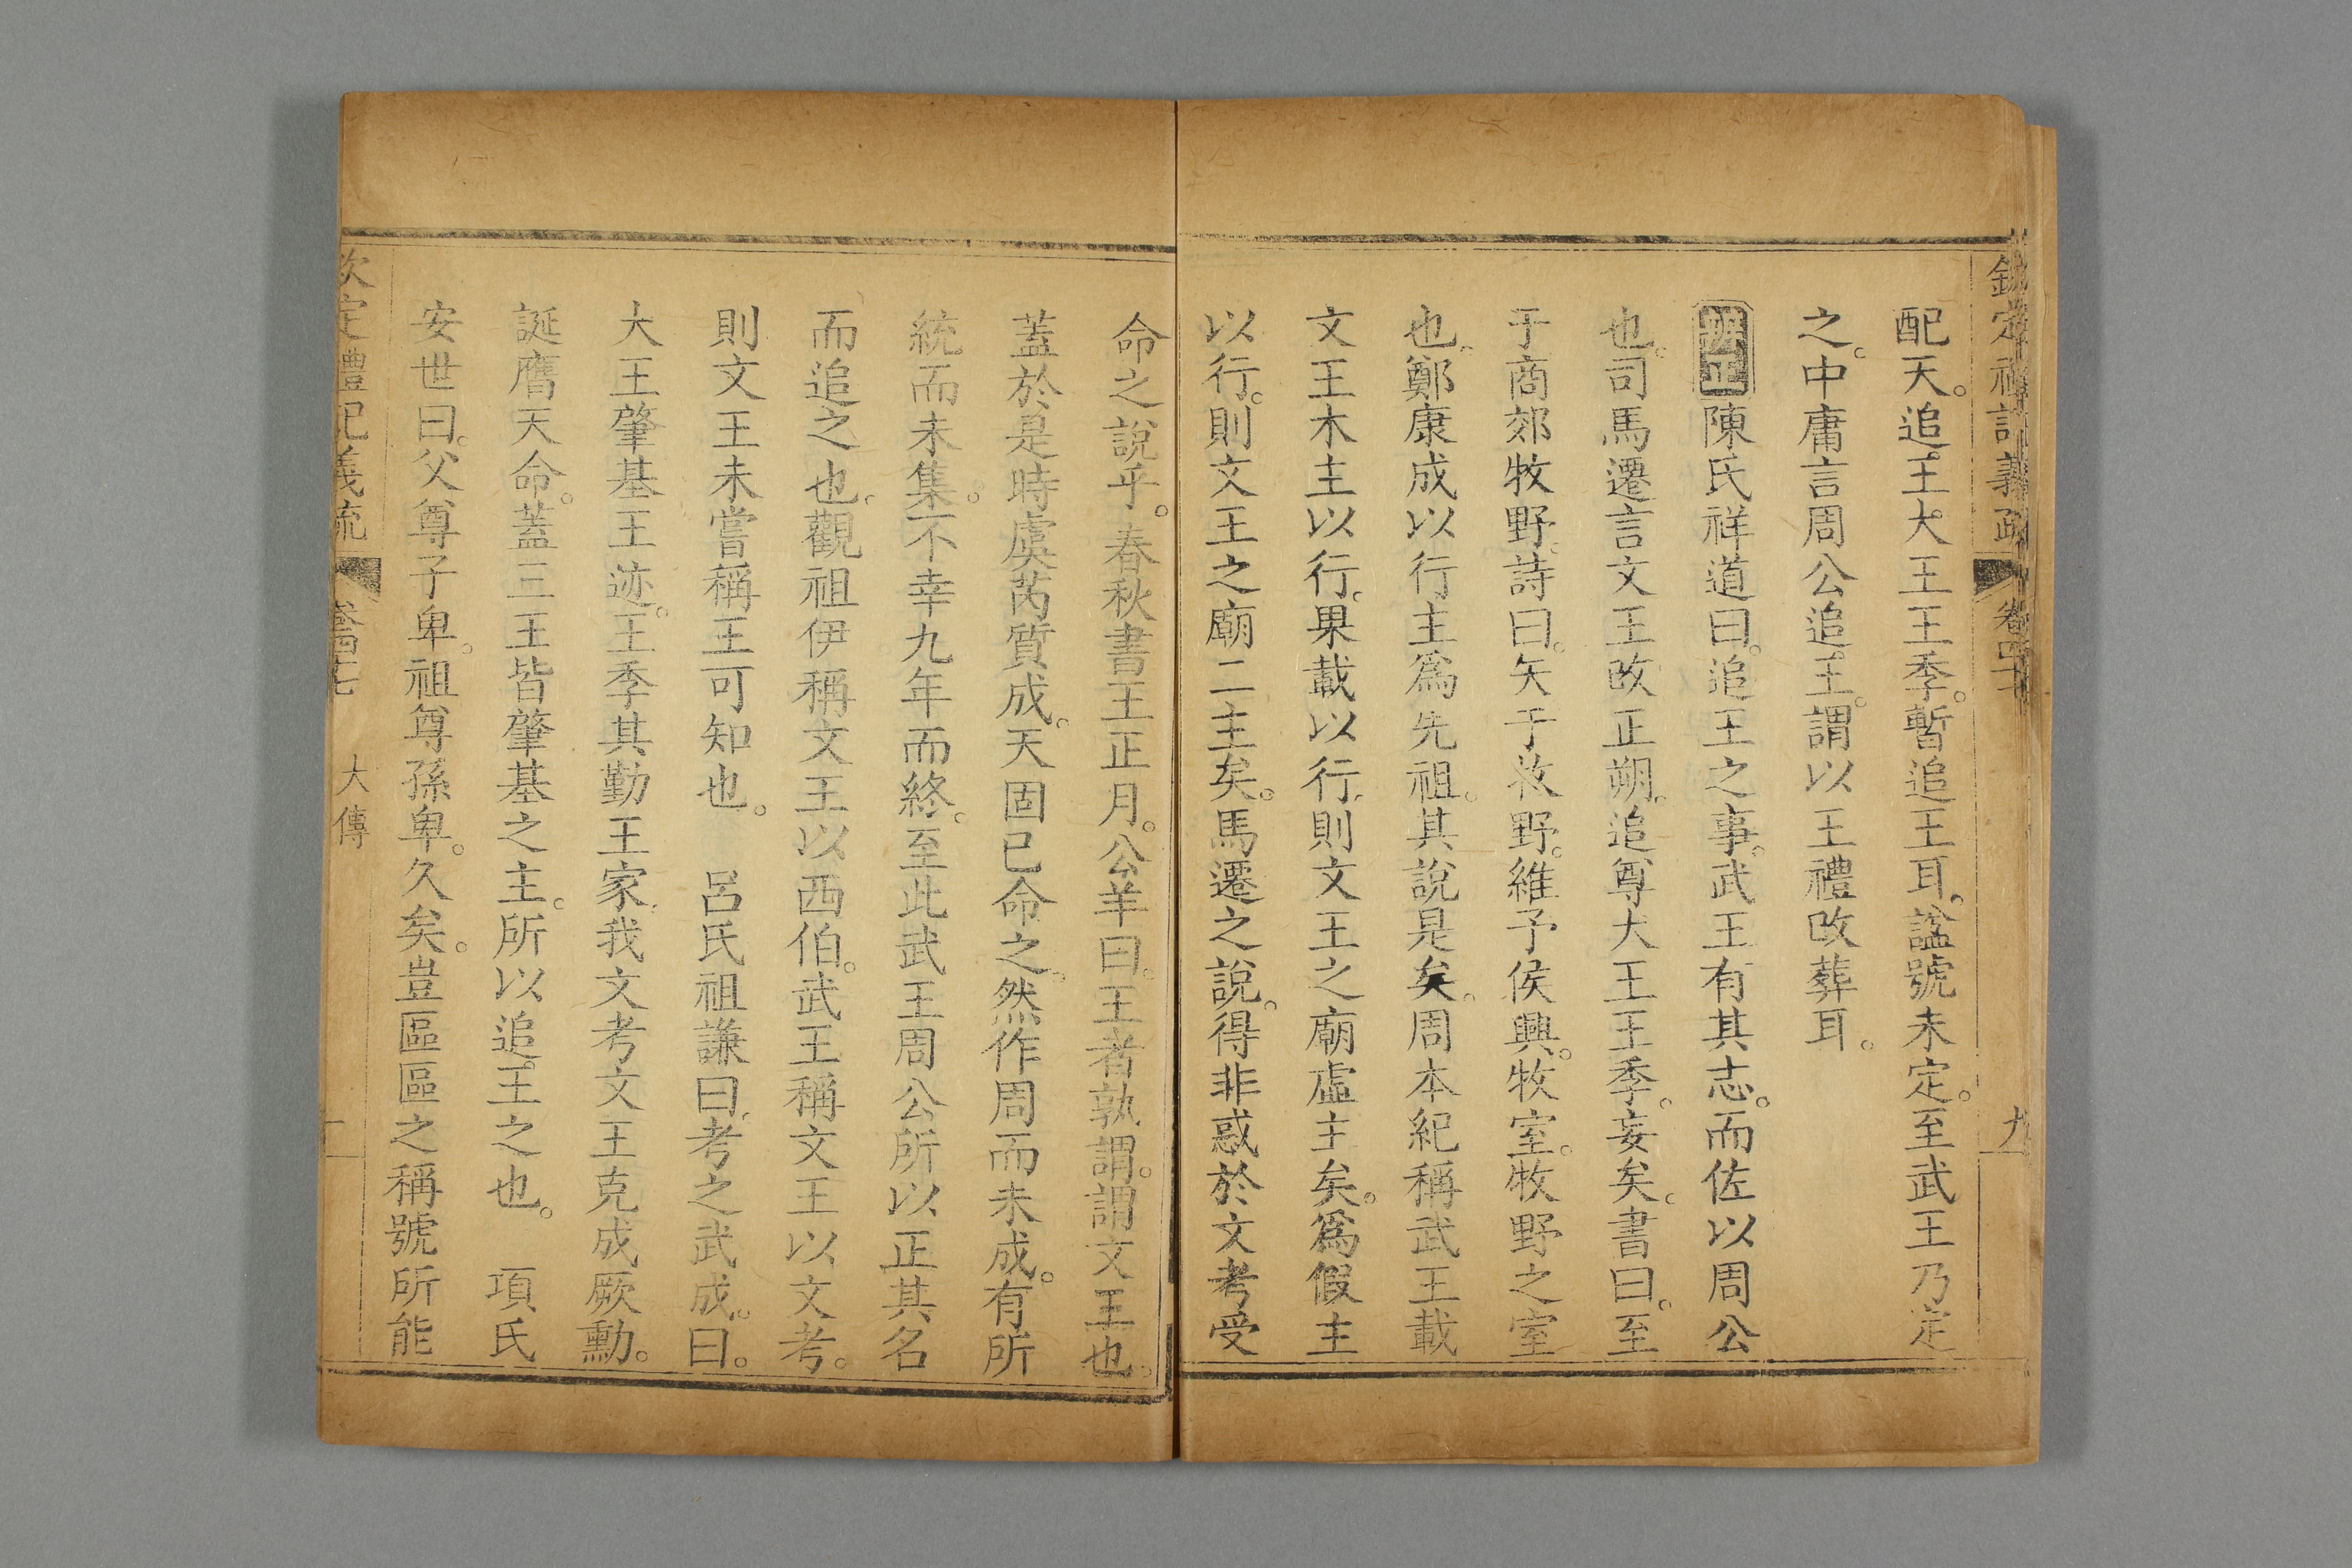 配天。追王。大王王季。暫追王耳。諡號未定。至武王乃定
之。中庸言周公追王。謂以王禮改葬耳。
辨正陳氏祥道曰。追王之事。武王有其志。而佐以周公
也。司馬遷言文王改正朔。追尊大王王季。妄矣。書曰。至
于商郊牧野。詩曰。矢于牧野。維予侯興。牧室。牧野之室
也。鄭康成以行主爲先祖。其說是矣。周本紀稱武王載
文王木主以行。果載以行。則文王之廟虛主矣。爲假主
以行。則文王之廟二主矣。馬遷之說。得非惑於文考受
命之說乎。春秋書王正月。公羊曰。王者孰謂。謂文王也。
蓋於是時虞芮質成。天固已命之。然作周而未成。有所
統而未集。不幸九年而終。至此武王周公所以正其名
而追之也。觀祖伊稱文王以西伯。武王稱文王以文考。
則文王未嘗稱王可知也。 呂氏祖謙曰。考之武成。曰。
大王肇基王迹。王季其勤王家。我文考文王克成厥勳。
誕膺天命。蓋三王皆肇基之主。所以追王之也。 項氏
安世曰。父尊子卑。祖尊孫卑。久矣。豈區區之稱號所能
欽定禮記義疏 大傳